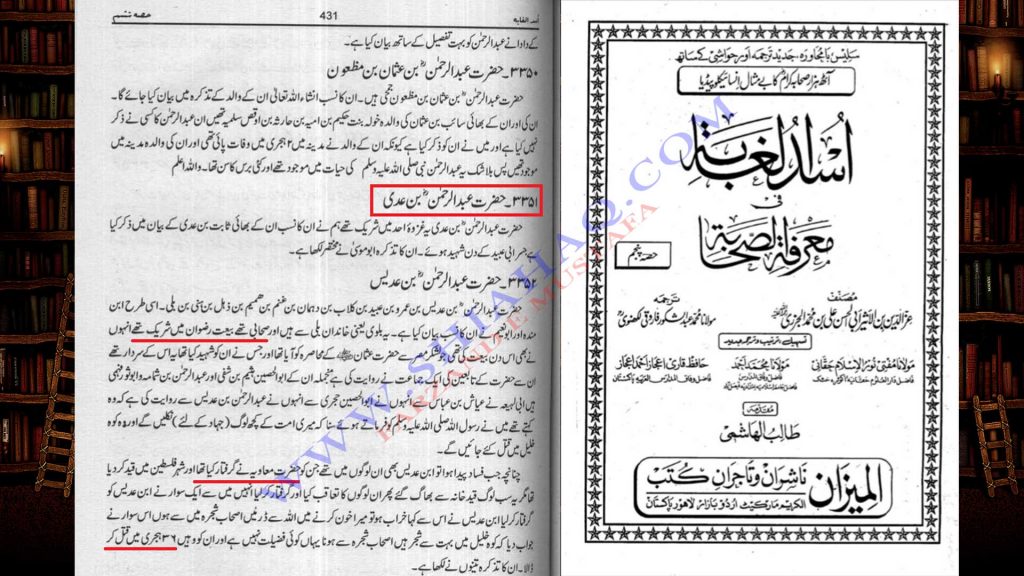 اُسد الغابہ
431
حصہ پنجم
کے دادا نے عبدالرحمٰن کو بہت تفصیل کے ساتھ بیان کیا ہے۔
۳۳۵۰۔ حضرت عبدالرحمٰنؓ بن عثمان بن مظعون
حضرت عبدالرحمٰن بن عثمان بن مظعون جمحی ہیں۔ ان کا نسب انشاء اللہ تعالیٰ ان کے والد کے تذکرہ میں بیان کیا جائے گا۔
ان کی اور ان کے بھائی سائب بن عثمان کی والدہ خولہ بنت حکیم بن امیہ بن حارثہ بن اوقص سلمیہ تھیں ان عبدالرحمٰن کا کسی نے ذکر
نہیں کیا ہے اور میں نے ان کو ذکر کیا ہے کیونکہ ان کے والد نے مدینہ میں ۲ ہجری میں وفات پائی تھی اور ان کی والدہ مدینہ میں
موجود تھیں پس بلا شک یہ عبدالرحمٰن نبی صلی اللہ علیہ وسلم کی حیات میں موجود تھے اور کئی برس کا سن تھا۔ واللہ اعلم
۳۳۵۱۔ حضرت عبدالرحمٰنؓ بن عدی
حضرت عبدالرحمٰنؓ بن عدی یہ غزوۂ احد میں شریک تھے ہم نے ان کا نسب ان کے بھائی ثابت بن عدی کے بیان میں ذکر کیا
ہے جسر ابی عبید کے دن شہید ہوئے۔ ان کا تذکرہ ابو موسیٰ نے مختصر لکھا ہے۔
۳۳۵۲۔ حضرت عبدالرحمٰنؓ بن عدیس
حضرت عبدالرحمٰنؓ بن عدیس بن عمرو بن عبید بن کلاب بن دہمان بن غنم بن ہمیم بن ذہل بن ہنی بن بلی۔ اسی طرح ابن
مندہ اور ابو نعیم نے ان کا نسب بیان کیا ہے۔ یہ بلوی یعنی خاندان بلی سے ہیں اور صحابی تھے بیعت رضوان میں شریک تھے انہوں
نے بھی اس دن بیعت کی تھی جو لشکر مصر سے حضرت عثمان کے محاصرہ کو آیا تھا اور جس نے ان کو شہید کیا تھا یہ اس کے سردار تھے
ان سے حضرت کے تابعین کی ایک جماعت نے روایت کی ہے منجملہ ان کے ابوالحصین ہثیم بن شفی اور عبدالرحمٰن بن شماسہ وابو ثور فہمی
ہیں ابن لہیعہ نے عیاش بن عباس سے انہوں نے ابوالحصین حجری سے انہوں نے عبدالرحمٰن بن عدیس سے روایت کی ہے کہ وہ
کہتے تھے میں نے رسول اللہ صلی اللہ علیہ وسلم کو فرماتے ہوئے سنا کہ میری امت کے کچھ لوگ (جہاد کے لئے) نکلیں گے اور وہ کوہ
خلیل میں قتل کئے جائیں گے۔
چنانچہ جب فساد پیدا ہوا تو ابن عدیس بھی ان لوگوں میں تھے جن کو حضرت معاویہ نے گرفتار کیا تھا اور شہر فلسطین میں قید کر دیا
تھا مگر یہ سب لوگ قید خانہ سے بھاگ گئے پھر ان لوگوں کا تعاقب کیا اور گرفتار کر لیا انہیں میں سے ایک سوار نے ابن عدیس کو
گرفتار کر لیا ابن عدیس نے اس سے کہا خراب ہو تو میرا خون کرنے میں اللہ سے ڈر میں اصحاب شجرہ میں سے ہوں اس سوار نے
جواب دیا کہ کوہ خلیل میں بہت سے شجر ہیں اصحاب شجرہ سے ہونا یہاں کوئی فضیلت نہیں ہے اور ان کو وہیں ۳۶ ہجری میں قتل کر
ڈالا۔ ان کا تذکرہ تینوں نے لکھا ہے۔
سلیس بامحاورہ، جدید ترجمہ اور حواشی کے ساتھ
آٹھ ہزار صحابہ کرام کا بے مثال انسائیکلوپیڈیا
اُسد الغابة
فی
معرفة الصحابة
حصہ پنجم
مصنف
عزالدین بن الاثیر ابی الحسن علی بن محمد الجزری
ترجمہ
مولانا محمد عبدالشکور فاروقی لکھنوی
تسہیل، ترتیب و ترجمہ جدید
مولانا مفتی نور الاسلام حقانی
مولانا محمد احمد
حافظ قاری اعجاز احمد اعجاز
مقدمہ
طالب الہاشمی
المیزان
ناشران و تاجران کتب
الکریم مارکیٹ اردو بازار لاہور پاکستان
WWW.SHIAHAQ.COM
FARZAND E MUSTAFA